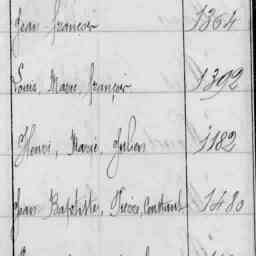 Jean-François 1364
Louis, Marie, François 1392
Henri, Marie, Julien 1182
Jean Baptiste, Pierre, Constant 1480